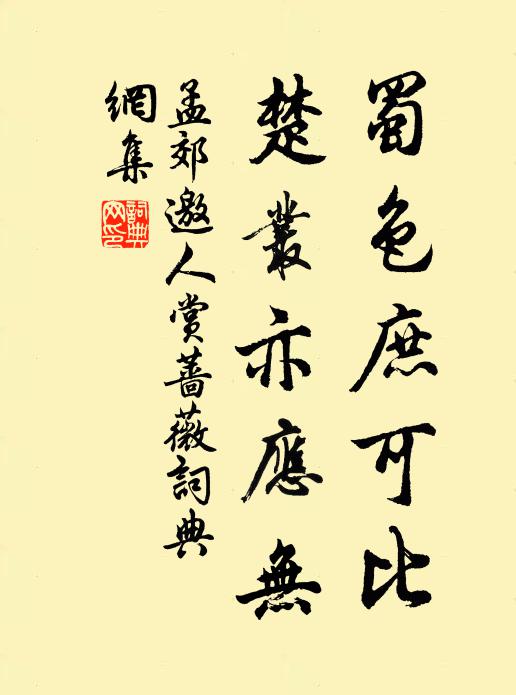 蜀色庶可比
楚叢亦應無
孟郊邀人賞薔薇詞典
網集
詞典
网印